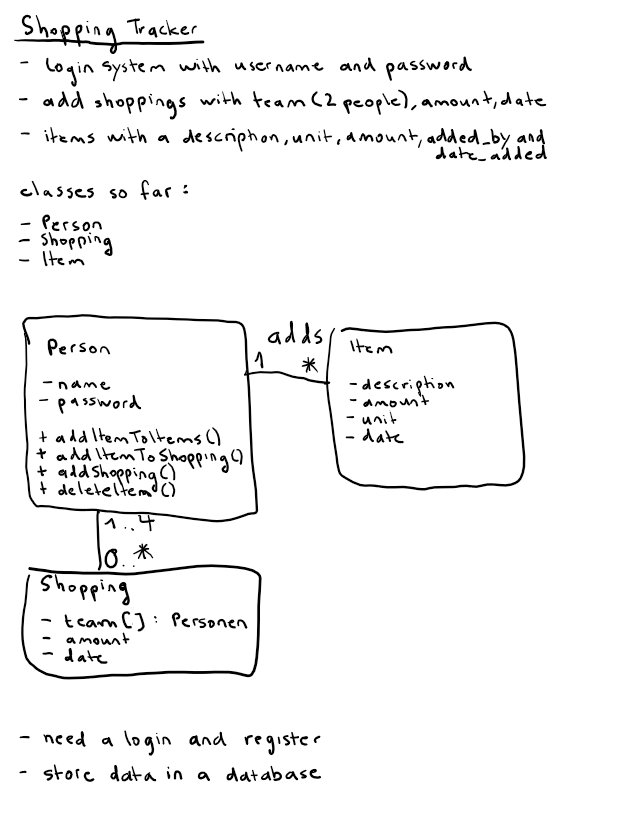 Shopping Tracker
- Login system with username and password
- add shoppings with team (2 people), amount, date
- items with a description, unit, amount, added_by and
date_added
classes so far :
- Person
- Shopping
- Item
Person
- name
- password
+ addItemToItems()
+ addItemToShopping()
+ addShopping()
+ deleteItem()
adds
1 *
Item
- description
- amount
- unit
- date
1..4
0..*
Shopping
- team[] : Personen
- amount
- date
- need a login and register
- store data in a database